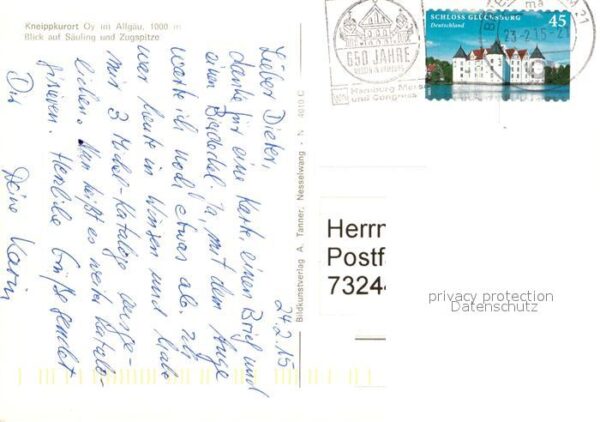 Kneippkurort Oy im Allgäu, 1000 m
Blick auf Säuling und Zugspitze
24.2.15
Lieber Dieter,
danke für eine Karte, einen Brief und
einen Ja, mit dem Auge
warte ich noch etwas ab. Ich
war heute in Winsen und habe
mir 3 Michel-Kataloge ausge-
liehen. Nun heißt es weiter katalo-
gisieren. Herzliche Grüße sendet
Dir
Deine Karin
Bildkunstverlag A. Tanner, Nesselwang - N 4010 C
650 JAHRE
Hamburg Messe
und Congress
SCHLOSS GLÜCKSBURG
Deutschland
45
BRIEFZENTRUM 21
ma
23-2.15-21
Herrn
Postfa
73244
privacy protection
Datenschutz